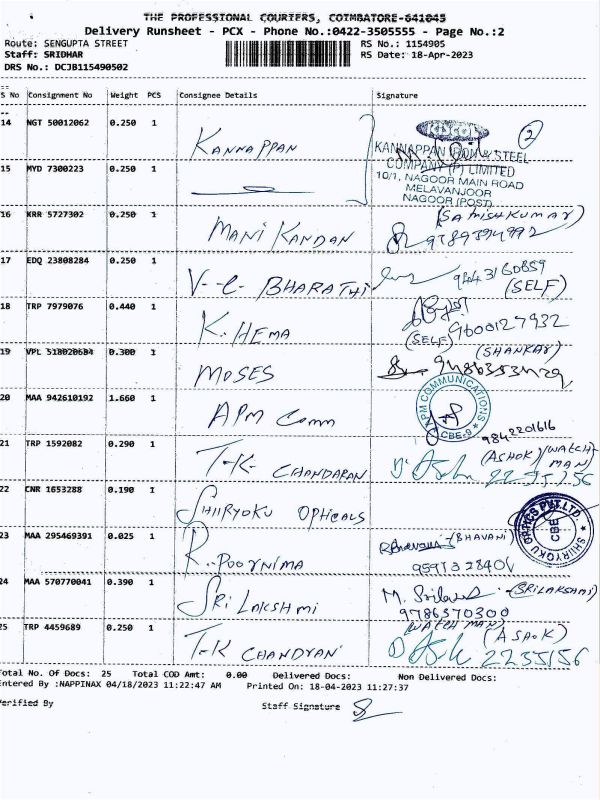 THE PROFESSIONAL COURIERS, COIMBATORE-641045
Delivery Runsheet - PCX - Phone No.:0422-3505555 - Page No.:2
Route: SENGUPTA STREET RS No.: 1154905
Staff: SRIDHAR RS Date: 18-Apr-2023
DRS No.: DCJB115490502
S No Consignment No Weight PCS Consignee Details Signature
14 NGT 50012062 0.250 1 KANNAPPAN
KISCOL 2
KANNAPPAN IRON & STEEL
COMPANY (P) LIMITED
10/1, NAGOOR MAIN ROAD
MELAVANJOOR
NAGOOR (POST)
15 MYD 7300223 0.250 1
16 KRR 5727302 0.250 1 MANI KANDAN (SATHISHKUMAR)
9789394992
17 EDQ 23808284 0.250 1 V-C- BHARATHI 9443160859
(SELF)
18 TRP 7979076 0.440 1 K. HEMA (SELF) 9600127932
19 VPL 518020684 0.300 1 MOSES (SHANKAR)
20 MAA 942610192 1.660 1 APM Comm
APM COMMUNICATIONS
CBE-9
9842201616
21 TRP 1592082 0.290 1 T-K- CHANDARAN (ASHOK) (WATCH
MAN)
22 CNR 1653288 0.190 1 SHIIRYOKU OPTICALS
SHIIRYOKU OPTICS PVT.LTD
CBE
23 MAA 295469391 0.025 1 R. POORNIMA (BHAVANI)
24 MAA 570770041 0.390 1 SRI LAKSHMI M. Srilakshmi (SRILAKSHMI)
9786370300
25 TRP 4459689 0.250 1 T-K CHANDRAN (WATCH MAN) (ASHOK)
2235156
Total No. Of Docs: 25 Total COD Amt: 0.00 Delivered Docs: Non Delivered Docs:
Entered By :NAPPINAX 04/18/2023 11:22:47 AM Printed On: 18-04-2023 11:27:37
Verified By Staff Signature